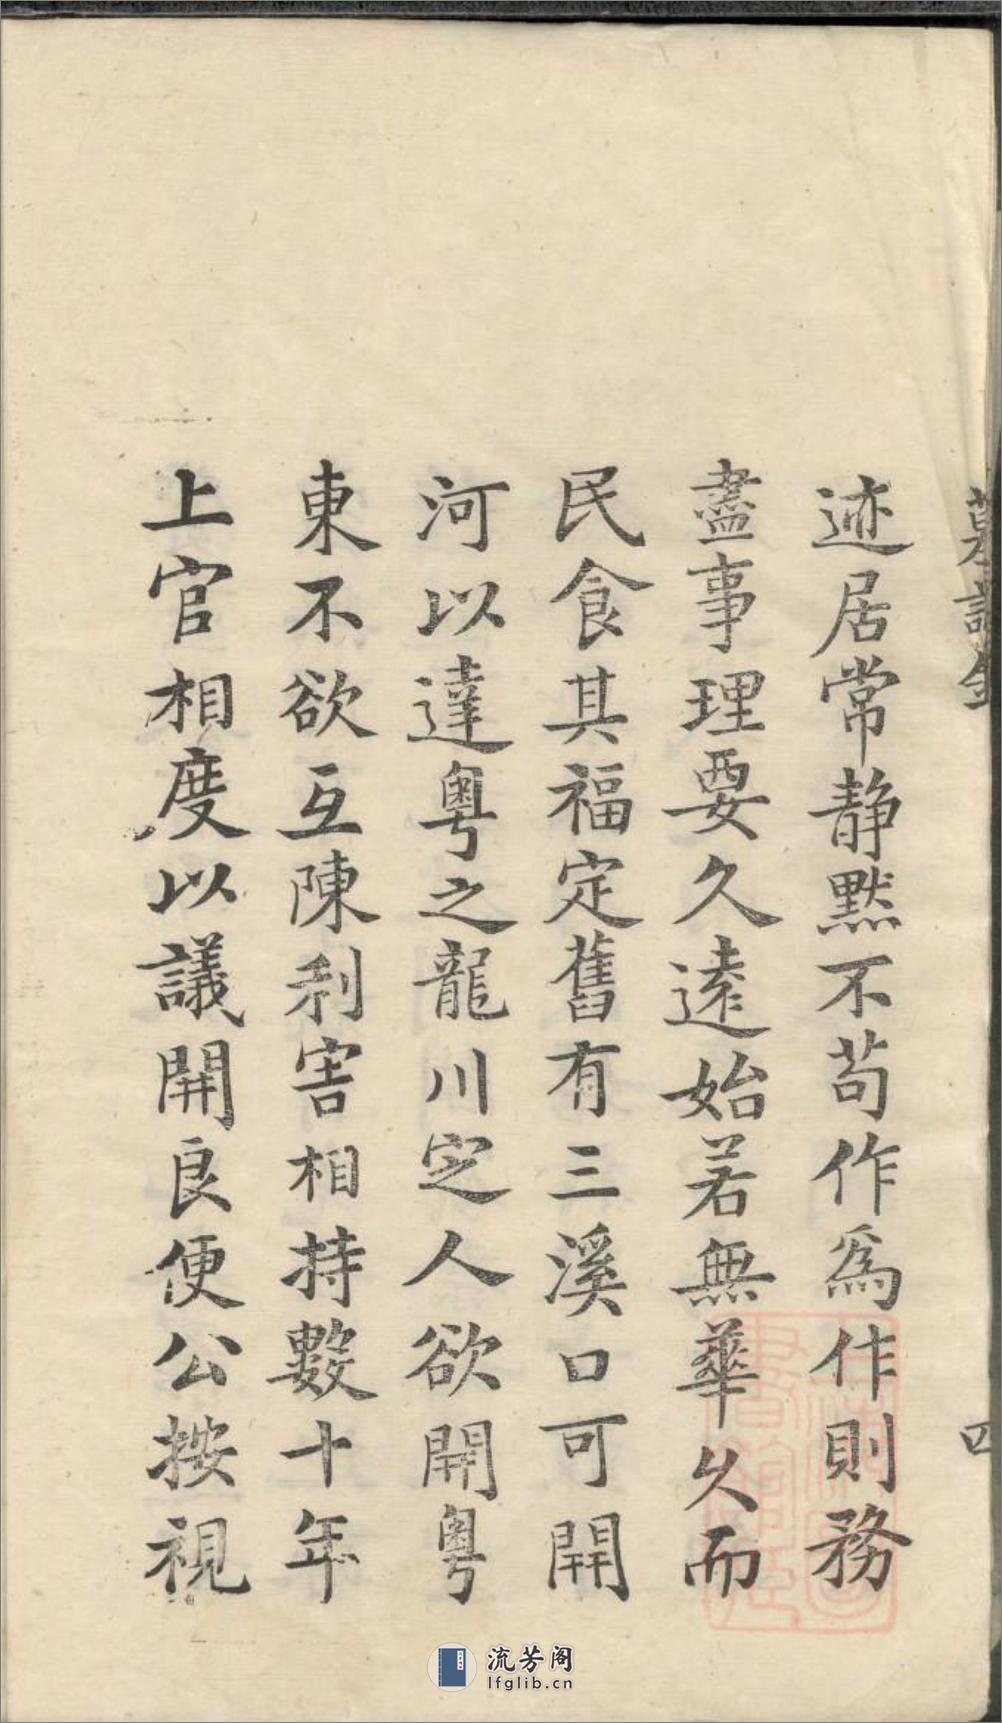 墓誌銘
四
迹居常静默不苟作爲作則務
盡事理要久遠始若無華久而
民食其福定舊有三溪口可開
河以達粤之龍川定人欲開粤
東不欲互陳利害相持數十年
上官相度以議開良便公按視
流芳阁
lfglib.cn